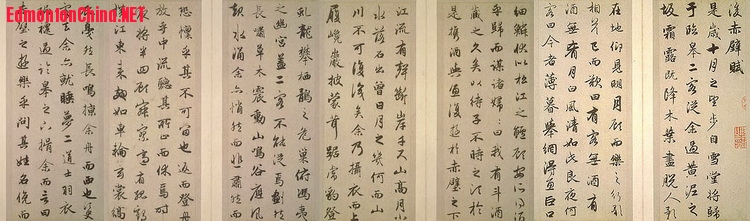 EdmontonChina.NET
後赤壁賦
是歲十月之望步自雪堂將歸
于臨皋二客從余過黃泥之
坂霜露既降木葉盡脫人影
在地仰見明月顧而樂之行歌
相答已而歎曰有客無酒有
酒無肴月白風清如此良夜何
客曰今者薄暮舉網得魚巨口
細鱗狀似松江之鱸顧安所得酒
乎歸而謀諸婦婦曰我有斗酒
藏之久矣以待子不時之須於
是攜酒與魚復遊於赤壁之下
江流有聲斷岸千尺山高月小
水落石出曾日月之幾何而江
山不可復識矣余乃攝衣而上
履巉巖披蒙茸踞虎豹登
虬龍攀栖鶻之危巢俯馮夷
之幽宮蓋二客不能從焉劃然
長嘯草木震動山鳴谷應風
起水涌余亦悄然而悲肅然而
恐凜乎其不可留也返而登舟
放乎中流聽其所止而休焉時
夜將半四顧寂寥適有孤鶴
橫江東來翅如車輪玄裳縞
衣戛然長鳴掠余舟而西也須臾
客去余亦就睡夢二道士羽衣
翩僊過臨皋之下揖余而言曰
赤壁之遊樂乎問其姓名俛而